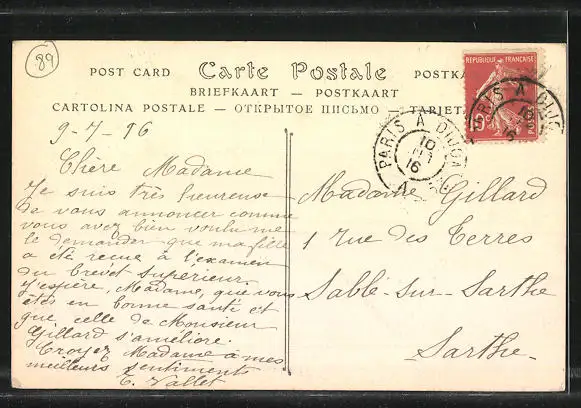 89
POST CARD Carte Postale POSTKA
BRIEFKAART — POSTKAART
CARTOLINA POSTALE — ОТКРЫТОЕ ПИСЬМО — TARJET
REPUBLIQUE FRANÇAISE
10c
POSTES
PARIS A DIJON
10
16
PARIS A DIJO
10
9-7-16
Chère Madame
Je suis très heureuse
de vous annoncer comme
vous avez bien voulu me
le demander que ma fille
a été reçue à l'examen
du brevet supérieur.
J'espère, Madame, que vous
êtes en bonne santé et
que celle de Monsieur
Gillard s'améliore.
Croyez Madame à mes
meilleurs sentiments
C. Vallet
Madame Gillard
1 rue des Terres
Sablé-sur-Sarthe
Sarthe-